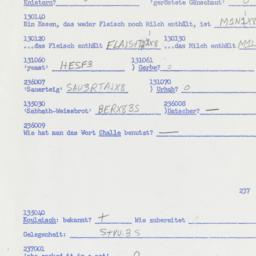 130140
Ein Essen, das weder Fleisch noch Milch enthält, ist M1N1X8
130120 130130
...das Fleisch enthält FLAISH1X8 ...das Milch enthält M1L
131060 131061
'yeast' HESF3 ) Gerbe? o
236007 131070
'Sauerteig' SAU3RTA1X8 ) Urhab? o
135030 236008
'Sabbath-Weissbrot' BERX83S )Datscher? —
236009
Wie hat man das Wort Challe benutzt? —
237
133040
bekannt? + Wie zubereitet
Gelegenheit: S+VU.3S
237001